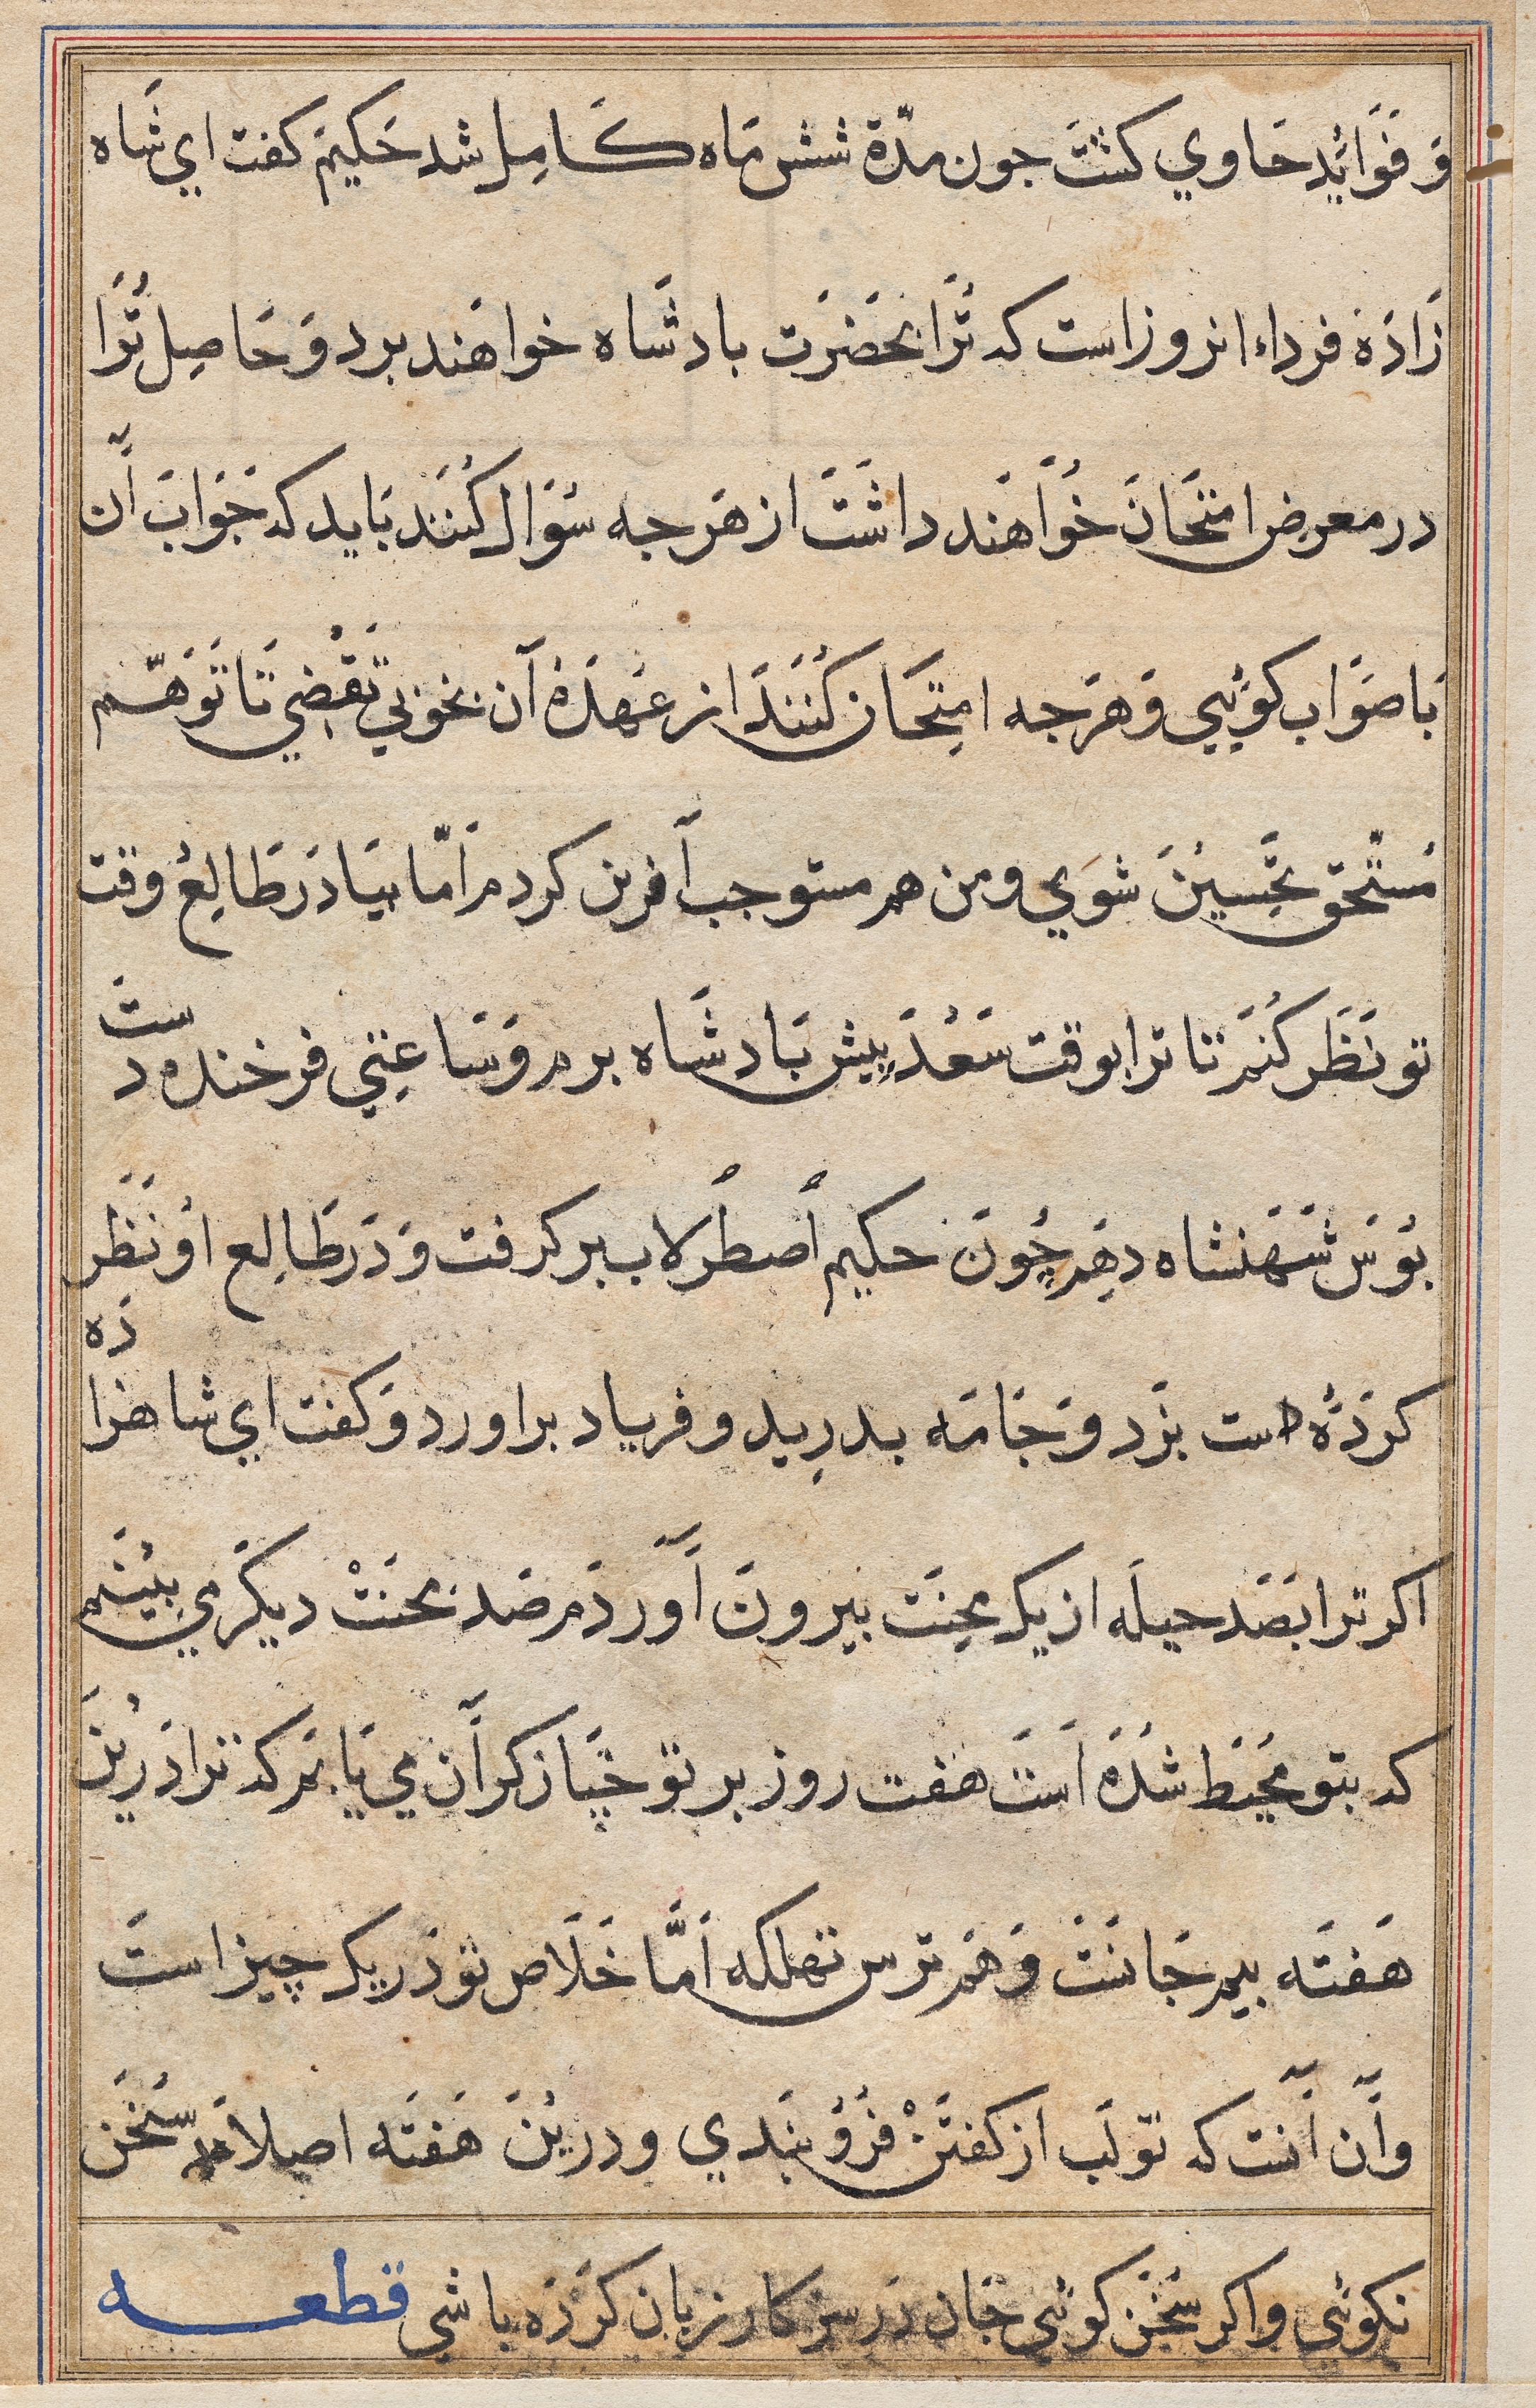 وَ فَوَائِدِ حَاوي كشتَ جون مدّة شش مَاه كَامِل شد حَكيمَ كفت اي شَاه
زَادَهٔ فرداء انروز است كه تُرَا بحَضرَت بادشَاه خواهَند برد وَ حَاصِل تُرَا
در معرِض امتحَانَ خُوَاهَند داشَتَ از هَرجه سُوَال كُنَند بَايد كه جَوَابَ آن
بَا صَوَاب كوُيِي وَ هَرجه امتِحَان كُنَندَ از عَهدَهٔ آن بخوبي تَقْضِي تَا تَوَهّم
مُستحَّق تحَسِينَ شوَي ومن هم مستوجب آفرين كردم اَمّا بيَا دَر طَالِعُ وقت
تو نَظَر كُنَم تا ترا بوقت سَعْدَ پِيش بَادشَاه برم وَ سَاعِتي فرخنده دستَ
بُوسَ شَهَنشاه دهَم چُونَ حكيم اُصطُرلاب بر كرفت وَ دَر طَالِع اُو نَظَر
كردَهُ دست بزَد وَ جَامَه بدرِيد و فرياد براورد وَ كفت اي شاهزادَه
اكر ترا بَصَد حيلَه از يك محِنَت بيرونَ آوَردَم صَد محنَتْ ديكَر مي بِيُنَم
كه بتو محُيَط شدَهُ اَستَ هفت روز بر تو جَپان كرآن مي يَابَم كه ترا دَريُنَ
هَفتَه بيم جَانَتَ وَ هَم ترس تهلكه اَمَّا خَلَاص تو دَر يك چيز استَ
وآن آنست كه تو لَب از كفتَنْ فرُو بنَدي و در يُنَ هَفتَه اصلاَ سُخَن
نكوئي و اكر سُخَن كوئي جَان دَر سَرِ كار زبان كردَه باشي قطعه